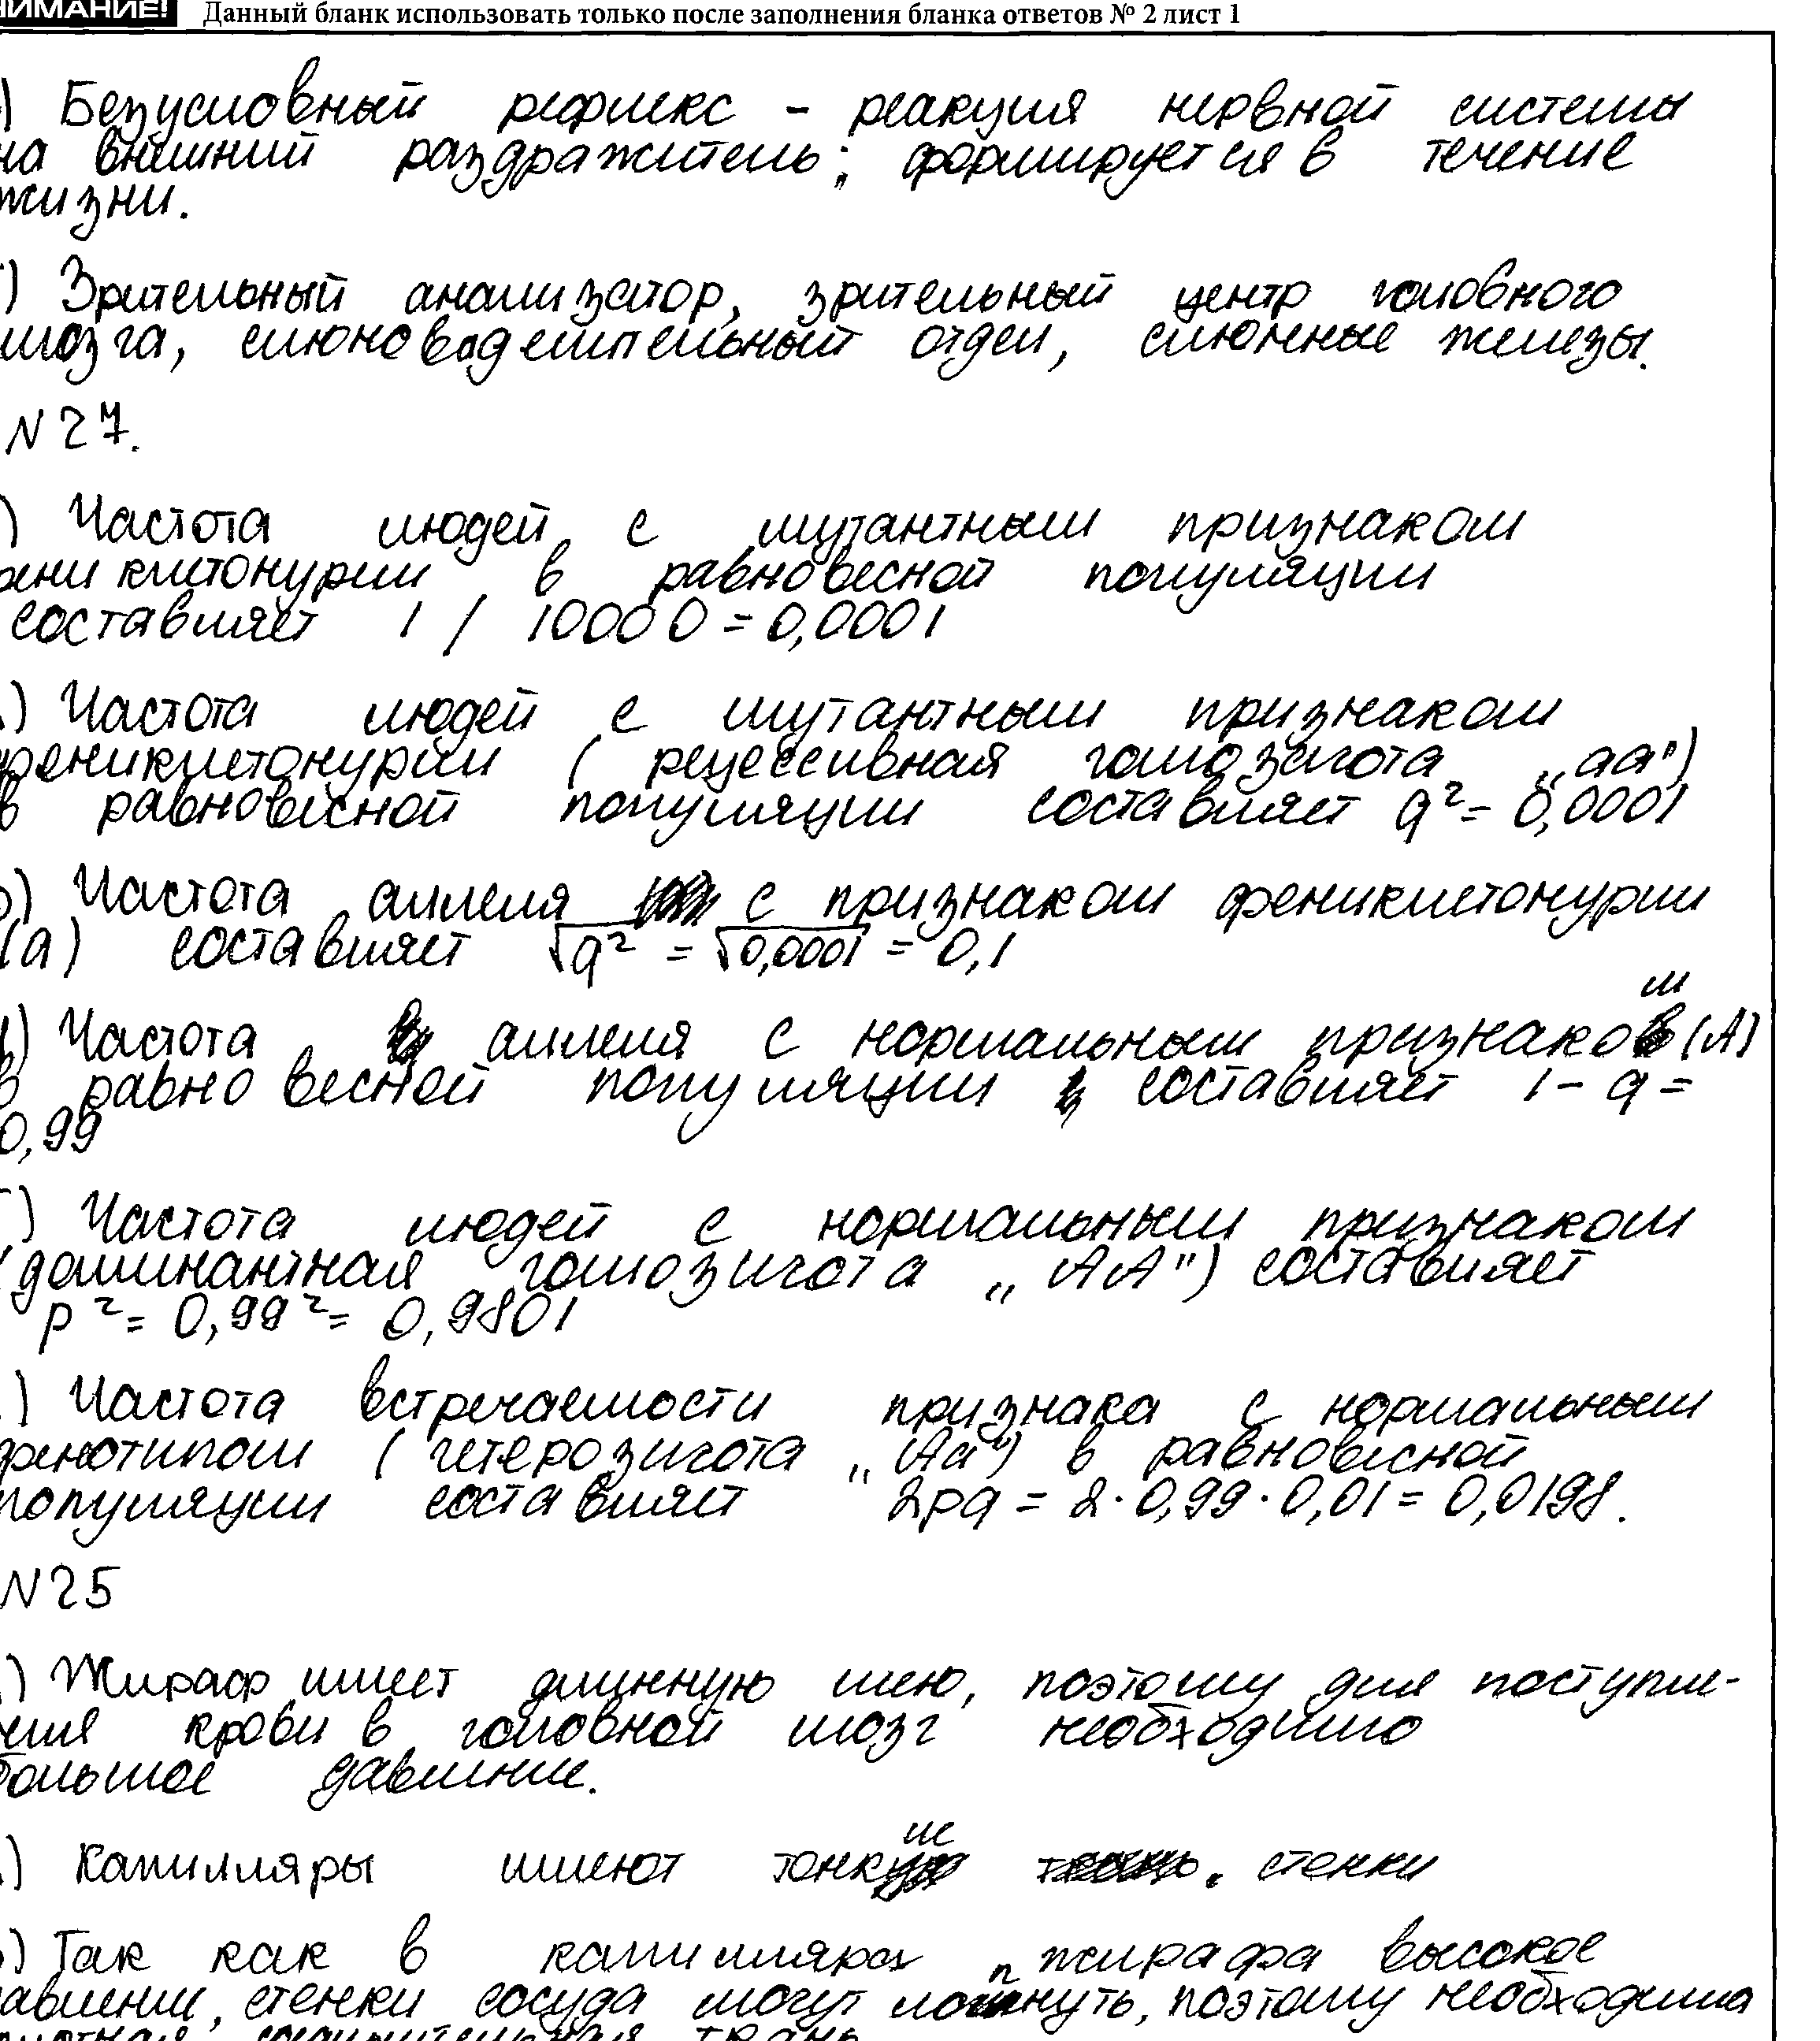 НИМАНИЕ! Данный бланк использовать только после заполнения бланка ответов № 2 лист 1
) Безусловный рефлекс - реакция нервной системы
на внешний раздражитель; формируется в течение
жизни.
) Зрительный анализатор, зрительный центр головного
мозга, слюноводелительный отдел, слюнные железы.
N 27.
) Частота людей с мутантным признаком
фени кметонурии в равновесной популяции
составляет 1 / 10000 = 0,0001
) Частота людей с мутантным признаком
феникметонурии ( рецессивная гомозигота „аа")
в равновесной популяции составляет q² = 0,0001
) Частота аллеля с признаком феникметонурии
(а) составляет √q² = √0,0001 = 0,1
) Частота аллеля с нормальным признаком (А)
в равновесной популяции составляет 1 - q =
0,99
) Частота людей с нормальным признаком
(доминантная гомозигота „АА") составляет
p² = 0,99² = 0,9801
) Частота встречаемости признака с нормальным
фенотипом ( гетерозигота „Аа") в равновесной
популяции составляет 2pq = 2 · 0,99 · 0,01 = 0,0198.
N 25
) Жираф имеет длинную шею, поэтому для поступле-
ния крови в головной мозг необходимо
большое давление.
) Капилляры имеют тонкие стенки
) Так как в капиллярах жирафа высокое
авление, стенки сосуда могут лопнуть, поэтому необходима
плотная соединительная ткань